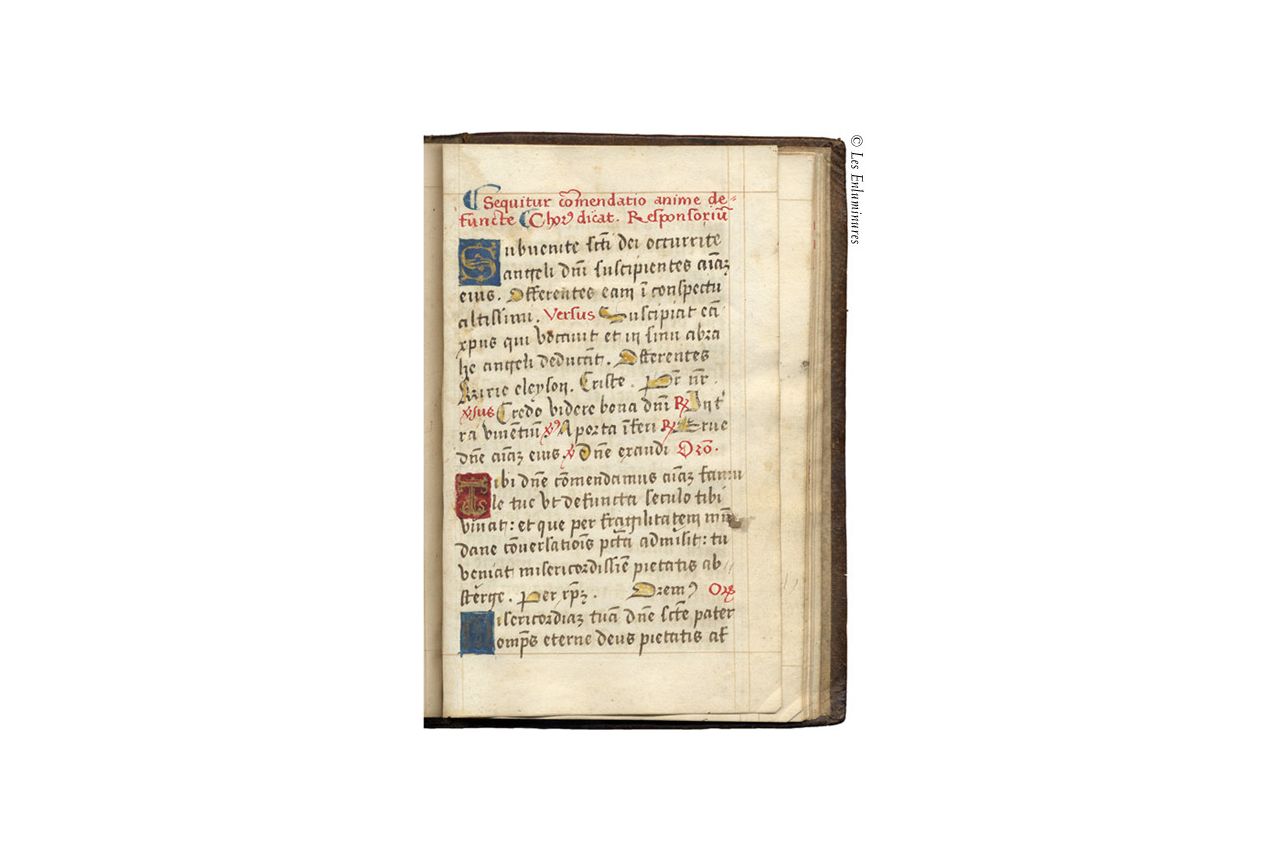 Sequitur cõmendatio anime de=
functe Chorꝰ dicat. Responsoriũ
Subuenite scti dei occurrite
angeli dñi suscipientes aĩaʒ
eius. Offerentes eam ĩ conspectu
altissimi. Versus Suscipiat eã
xpus qui vocauit et in sinu abra
he angeli deducãt. Offerentes
Kirie eleyson. Criste. Pr̃ nr̃.
Credo videre bona dñi ℟ In t
ra viuentiũ ℣ A porta ĩferi ℟ Erue
dñe aĩaʒ eius ℣ Dñe exaudi Orõ.
Tibi dñe cõmendamus aĩaʒ famu
le tue vt defuncta seculo tibi
viuat: et que per fragilitatem mũ
dane cõuersationis pctã admisit: tu
veniat misericordissĩe pietatis ab
sterge. Per xp̃ʒ. Oremꝰ Orõ
Misericordiaʒ tuã dñe scte pater
omp̃s eterne deus pietatis af
© Les Enluminures